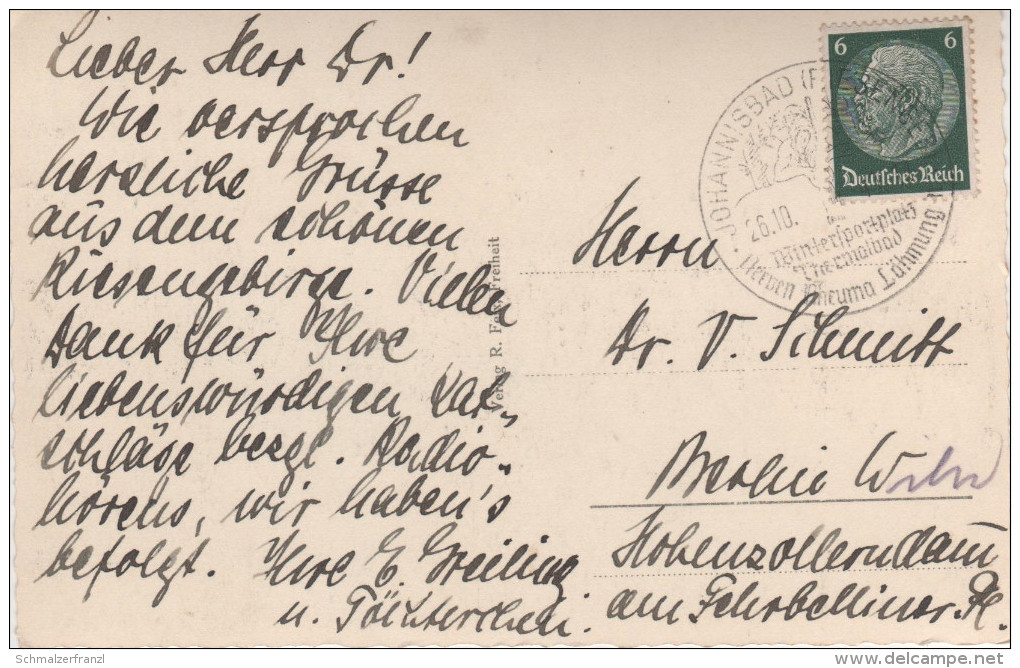 Lieber Herr Dr!
Wie versprochen
herzliche Grüsse
aus dem schönen
Riesengebirge. Vielen
Dank für Ihre
liebenswürdigen Rat-
schläge bezgl. Radio-
hörens, wir haben's
befolgt. Ihre E. Greiling
u. Töchterchen.
Verlag R. Freiheit
6 6
Deutsches Reich
JOHANNISBAD
26.10.
Wintersportplatz
Thermalbad
Nerven Rheuma Lähmung
Herrn
Dr. V. Schmitt
Berlin W
Hohenzollerndam̄
am Fehrbelliner Pl.
Schmalzerfranzl
delcampe.net